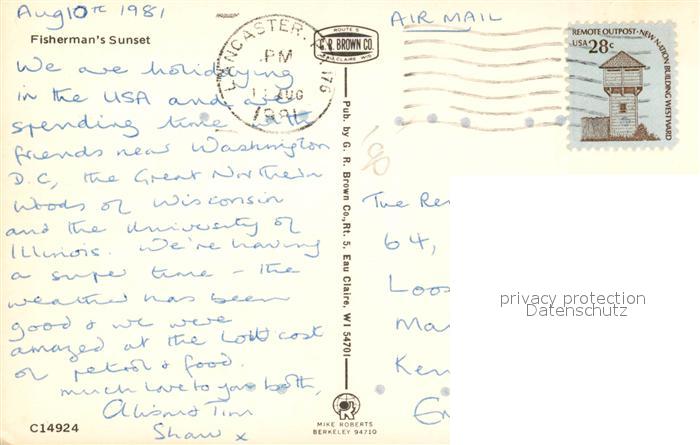 Aug 10th 1981
Fisherman's Sunset
We are holidaying
in the USA and are
spending time with
friends near Washington
D.C, the Great Northern
Woods of Wisconsin
and the University of
Illinois. We're having
a super time - the
weather has been
good & we were
amazed at the low cost
of petrol & food.
much love to you both,
Alison & Tim
Shaw x
C14924
LANCASTER, PA 176
PM
AUG
1981
ROUTE 5
G. R. BROWN CO.
EAU CLAIRE, WIS
Pub. by G. R. Brown Co., Rt. 5, Eau Claire, WI 54701
MIKE ROBERTS
BERKELEY 94710
AIR MAIL
REMOTE OUTPOST · NEW NATION BUILDING WESTWARD
USA 28c
The Rev
64,
Loos
Ma
Ken
En
privacy protection
Datenschutz